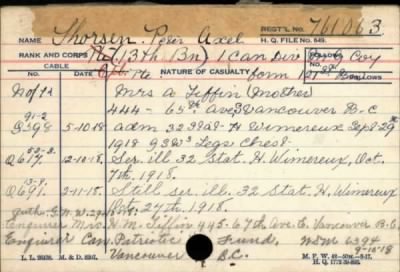 NAME Thorsen, Peter Axel REGT'L NO. 761063
H. Q. FILE NO. 649.
RANK AND CORPS Pte (7th Bn) 1 Can Div Coy
CABLE FOLLOWS
NO. DATE Pte. NATURE OF CASUALTY form 1 Bn FOLLOWS
Mrs A Tiffin (mother)
444 - 65th Ave Vancouver B.C
91-2
G398 5-10-18 adm 32 Stat H Wimereux Sept 29th
1918 G S W Legs Chest
Q617 12-10-18. Ser. ill 32 Stat. H. Wimereux, Oct.
7th. 1918.
Q691. 2-11-18. Still ser. ill. 32 Stat. H. Wimereux
Oct. 27th. 1918.
Enquirer Mrs. H. M. Tiffin 445-67th Ave. E. Vancouver B.C.
Enquirer Can. Patriotic Fund, 6394
Vancouver B.C. 9-10-18